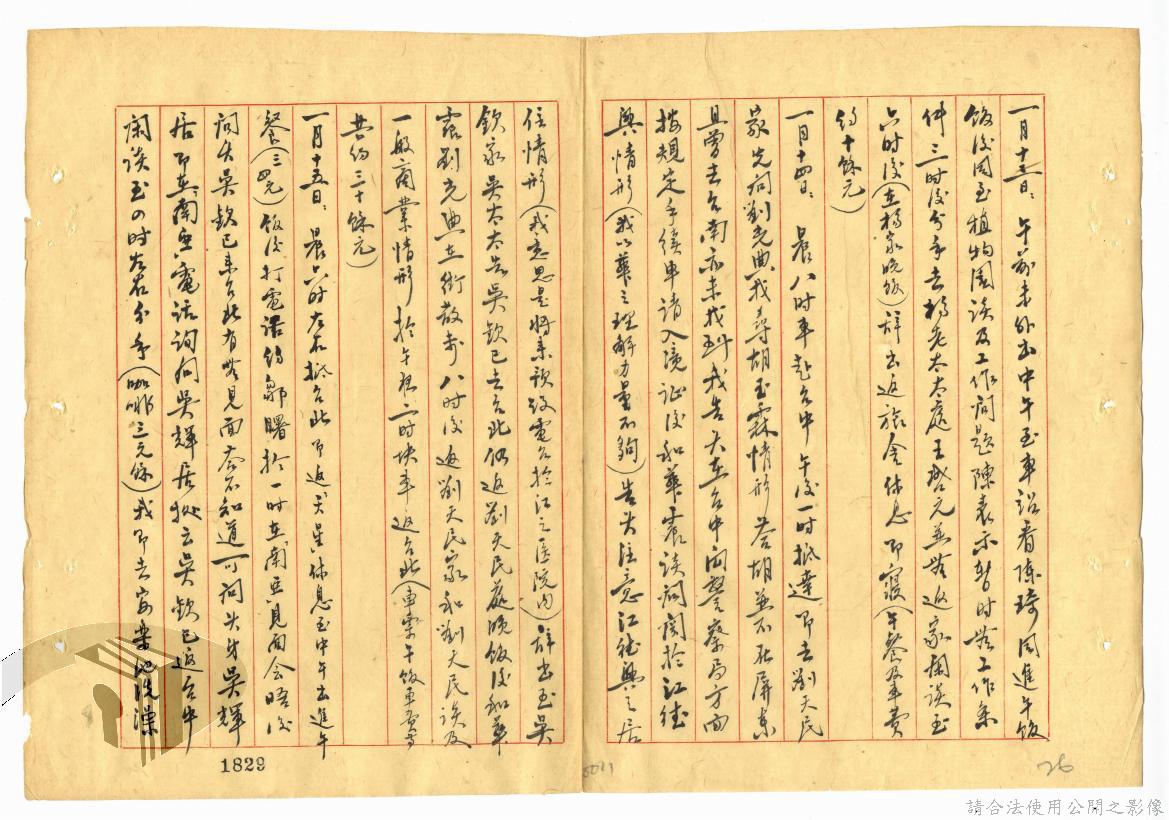 一月十三日：午前未外出中午至車站看陳琦同進午飯
飯後同至植物園談及工作問題陳表示暫時無工作条
件三時後分手去楊老太太處王啓元並無返家閑談至
六时後（在楊家晚飯）辞出返旅舍休息即寢（午餐及車費
約十餘元）
一月十四日：晨八时車赴台中午後一时抵達即去劉天民
家先问劉光典我尋胡玉霖情形答胡並不在屏東
且曾去台南亦未找到我告大在台中闻警察局方面
按規定手續申请入境证後和華震談询関於江德
興情形（我以華之理解力量不夠）告其注意江德興之居
住情形（我意思是將来放電台於江之医院内）辞出至吳
欽家吳太太告吳欽已去台北仍返劉天民處晚飯後和華
震劉光典在街散步八时後返劉天民家和劉天民談及
一般商業情形於午夜二时快車返台北（車票午飯車費等
共約三十餘元）
一月十五日：晨六时左右抵台北即返天星休息至中午出進午
餐（三四元）飯後打電話約鄒曙於一时在南亞見面会晤後
问其吳欽已来台北有無見面答不知道可问其弟吳輝
居即在南亞電话詢问吳輝居據云吳欽已返台中
閑談至の时左右分手（咖啡三元餘）我即去安樂池洗澡
1829
5011
26
請合法使用公開之影像